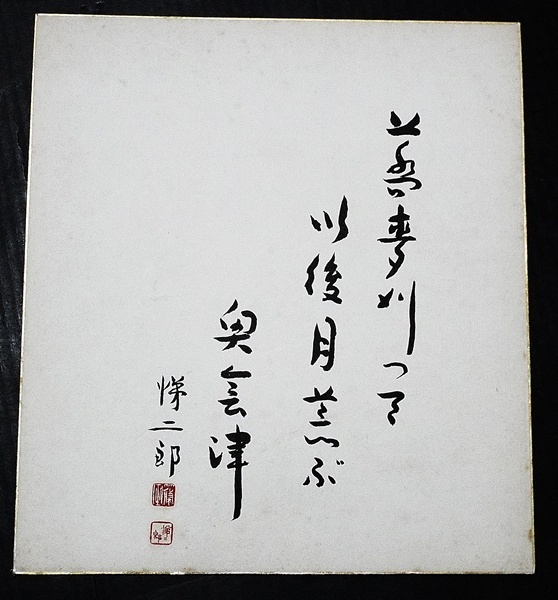 蕎麦刈つて
以後月荒ぶ
奥会津
悌二郎